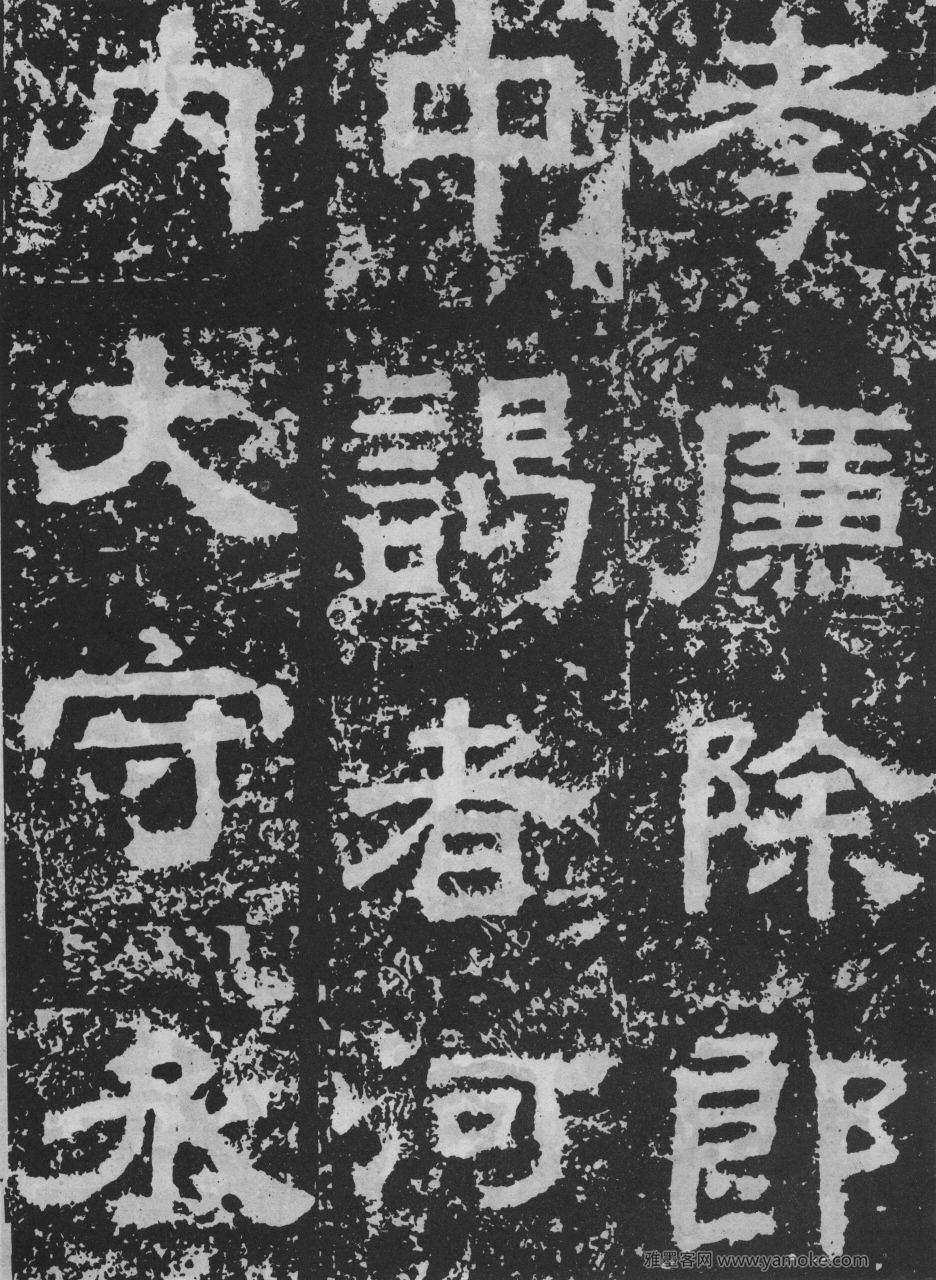 孝廉除郎
中謁者河
内大守永
雅墨客网 www.yamoke.com